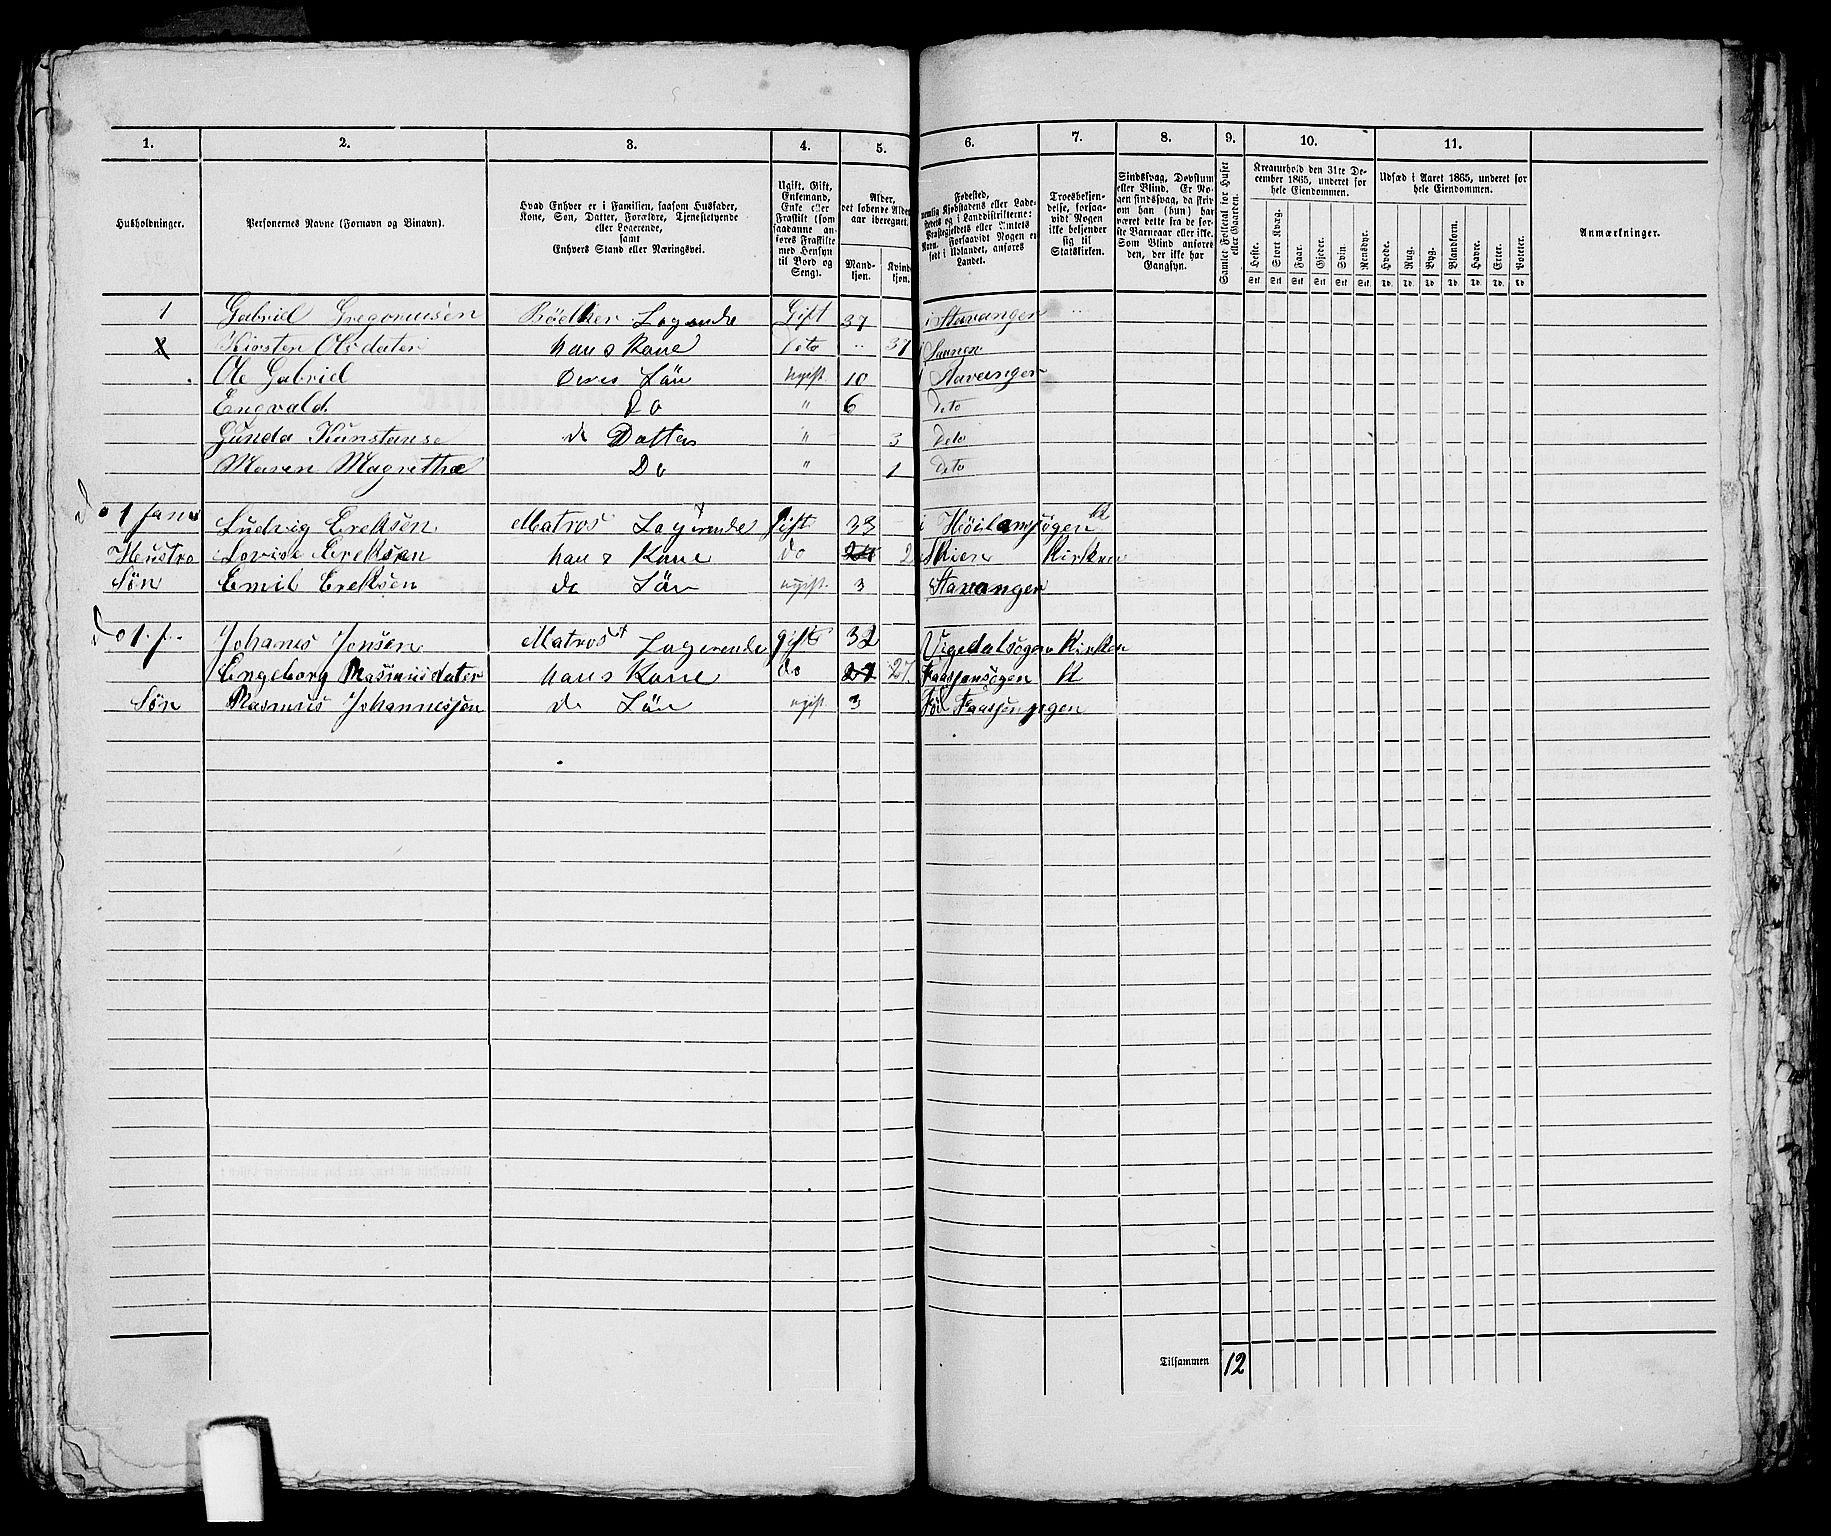 1. 2. 3. 4. 5. 6. 7. 8. 9. 10. 11.
Husholdninger.
Personernes Navne (Fornavn og Binavn).
Hvad Enhver er i Familien, saasom Husfader,
Kone, Søn, Datter, Forældre, Tjenestetyende
eller Logerende,
samt
Enhvers Stand eller Næringsvei.
Ugift, Gift,
Enkemand,
Enke eller
Fraskilt (som
saadanne an-
føres Fraskilte
med Hensyn
til Bord og
Seng).
Alder,
det løbende Alders-
aar iberegnet.
Mand-
kjøn.
Kvind
kjøn.
Fødested,
nemlig Kjøbstadens eller Lade-
stedets og i Landdistrikterne:
Præstegjeldets eller Amtets
Navn. Forsaavidt Nogen er
født i Udlandet, anføres
Landet.
Troesbekjen-
delse, forsaa-
vidt Nogen
ikke bekjender
sig til
Statskirken.
Sindssvag, Døvstum
eller Blind. Er No-
gen sindssvag, da skri-
ves om han (hun) har
været dette fra de før-
ste Barneaar eller ikke.
Som Blind anføres
den, der ikke har
Gangsyn.
Samlet Folketal for Huset
eller Gaarden.
Kreaturhold den 31te De-
cember 1865, underet for
hele Eiendommen.
Heste. Stort Kvæg. Faar. Gjeder. Svin. Rensdyr.
Stk. Stk. Stk. Stk. Stk. Stk.
Udsæd i Aaret 1865, underet for
hele Eiendommen.
Hvede. Rug. Byg. Blandkorn. Havre. Erter. Poteter.
Td. Td. Td. Td. Td. Td. Td.
Anmærkninger.
1 Gabriel Gregoriusen Bødker Logerende Gift 37 i Stavanger
Kirsten Olsdater hans Kone Deto 37
Ole Gabriel Deres Sön ugift 10 Stavanger
Engvald Do " 6 Deto
Gunda Kunstanse de Datter " 3 Deto
Maren Magrethe Do " 1 Deto
Ludvig Ereksen Matros Logerende gift 33
Hustro Lovise Ereksen hans Kone do 2 Skien Kirken
Søn Emil Ereksen do Sön ugift 3 Stavanger
Johanes Jonsen Matros Logerende gift 32 Vigedalsogen Kirken
Engeborg Rasmusdater hans Kone do 27 27.
Søn Rasmus Johannessen do Sön ugift 3
Tilsammen 12